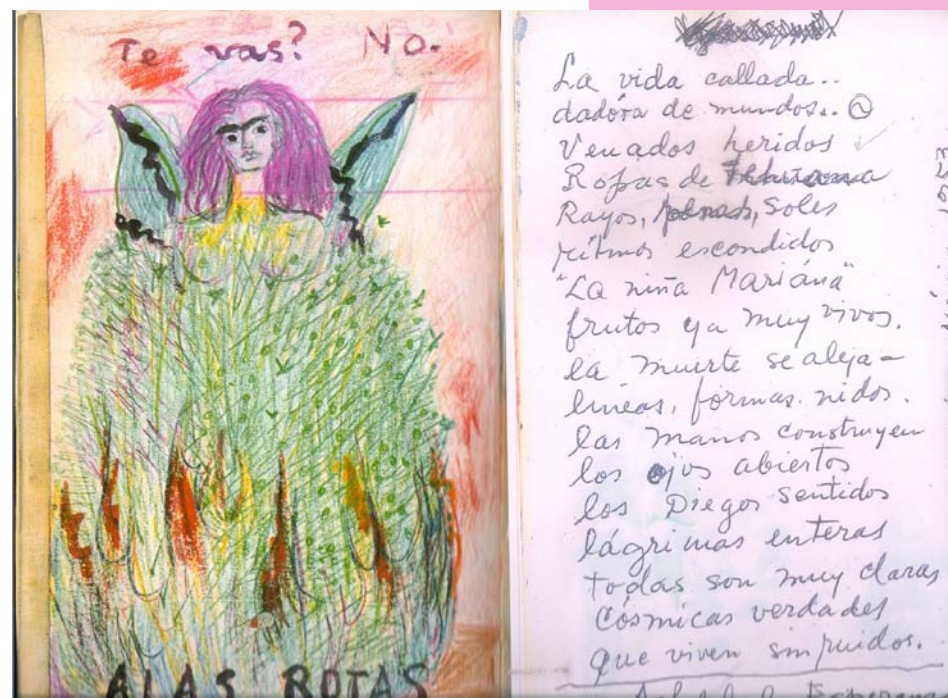 Te vas? No.
ALAS ROTAS
La vida callada..
dadora de mundos..
Venados heridos
Ropas de Tehuana
Rayos, penas, Soles
ritmos escondidos
"La niña Mariana"
frutos ya muy vivos.
la muerte se aleja –
lineas, formas. nidos.
las manos construyen
los ojos abiertos
los Diegos sentidos
lágrimas enteras
todas son muy claras
Cósmicas verdades
que viven sin ruidos.